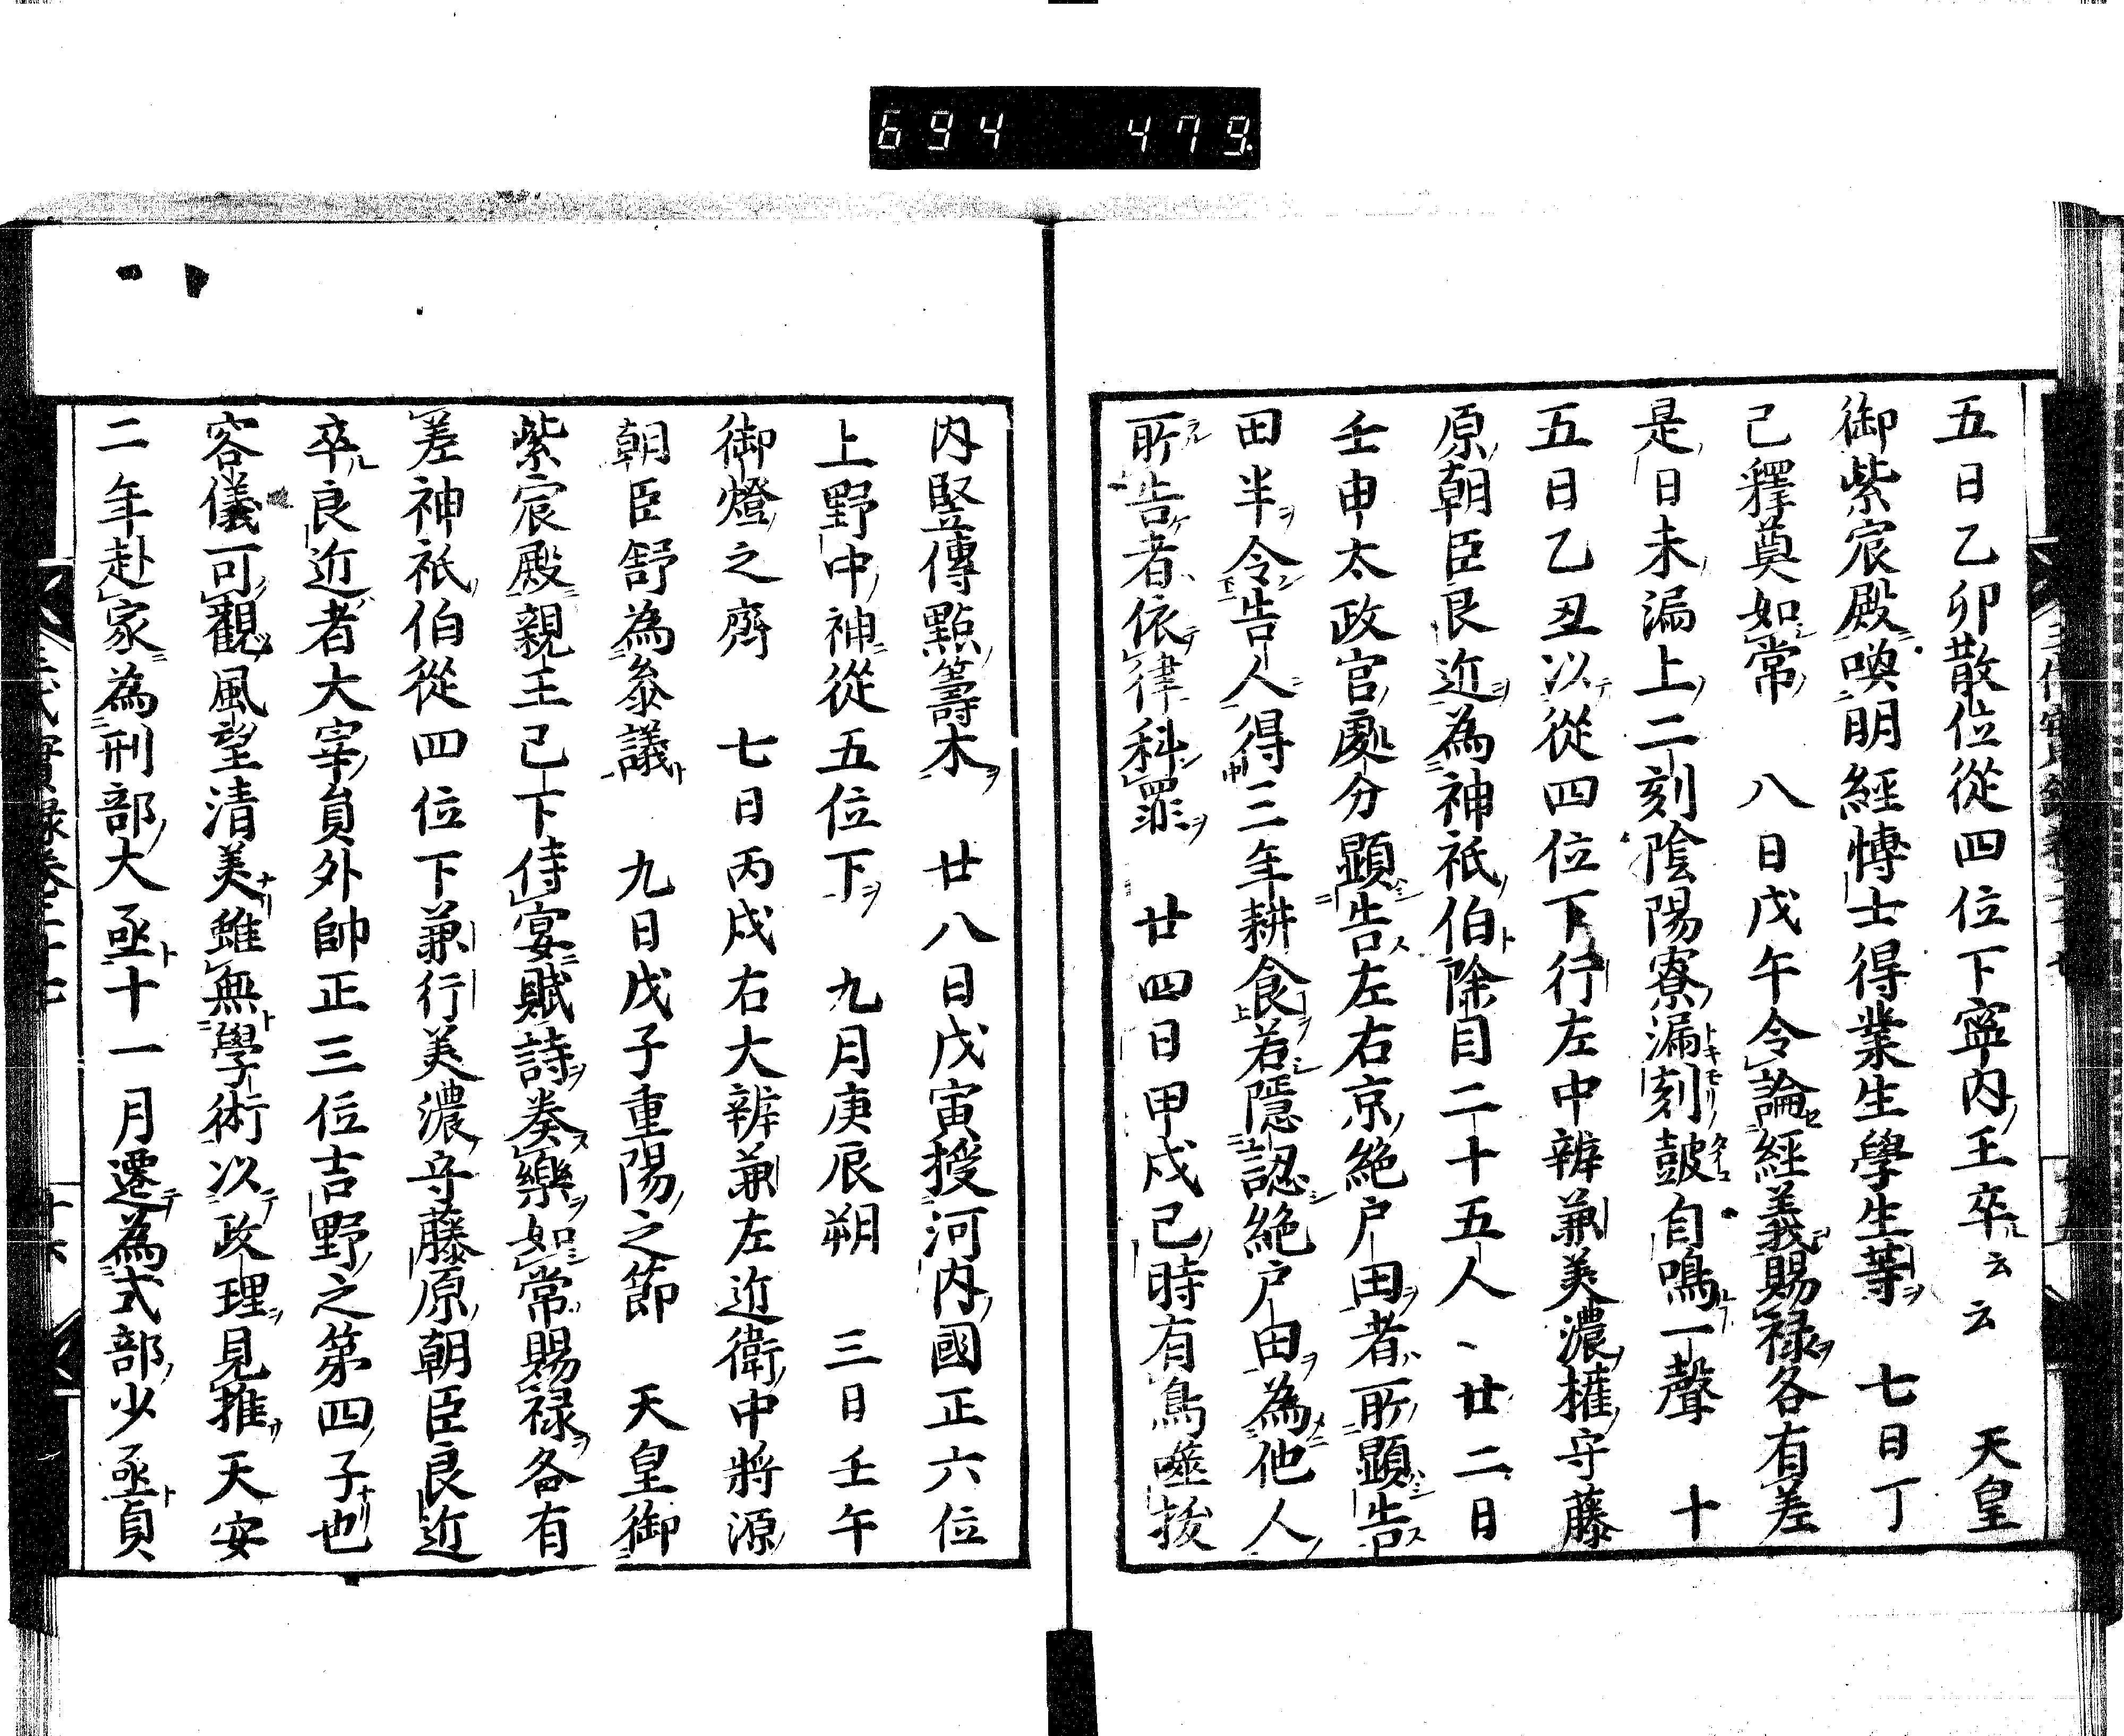 694 479
五日乙卯散位從四位下寧内王卒云云 天皇
御紫宸殿喚明經博士得業生學生等 七日丁
己釋奠如常 八日戊午令論經義賜禄各有差
是日未漏上二刻陰陽寮漏刻皷自鳴一聲 十
五日乙丑以從四位下行左中辨兼美濃權守藤
原朝臣良近為神祇伯除目二十五人、廿二日
壬申太政官處分顯告左右京絶戸田者所顯告
田半令告人得三年耕食若隱認絶戸田為他人
所告者依律科罪 廿四日甲戌已時有鳥噬抜
内竪傳點籌木 廿八日戊寅授河内國正六位
上野中神從五位下 九月庚辰朔 三日壬午
御燈之齊 七日丙戌右大辨兼左近衛中將源
朝臣舒為叅議 九日戊子重陽之節 天皇御
紫宸殿親王已下侍宴賦詩奏樂如常賜禄各有
差神祇伯從四位下兼行美濃守藤原朝臣良近
卒良近者大宰員外帥正三位吉野之第四子也
容儀可觀風望清美雖無學術以政理見推天安
二年赴家為刑部大丞十一月遷為式部少丞貞